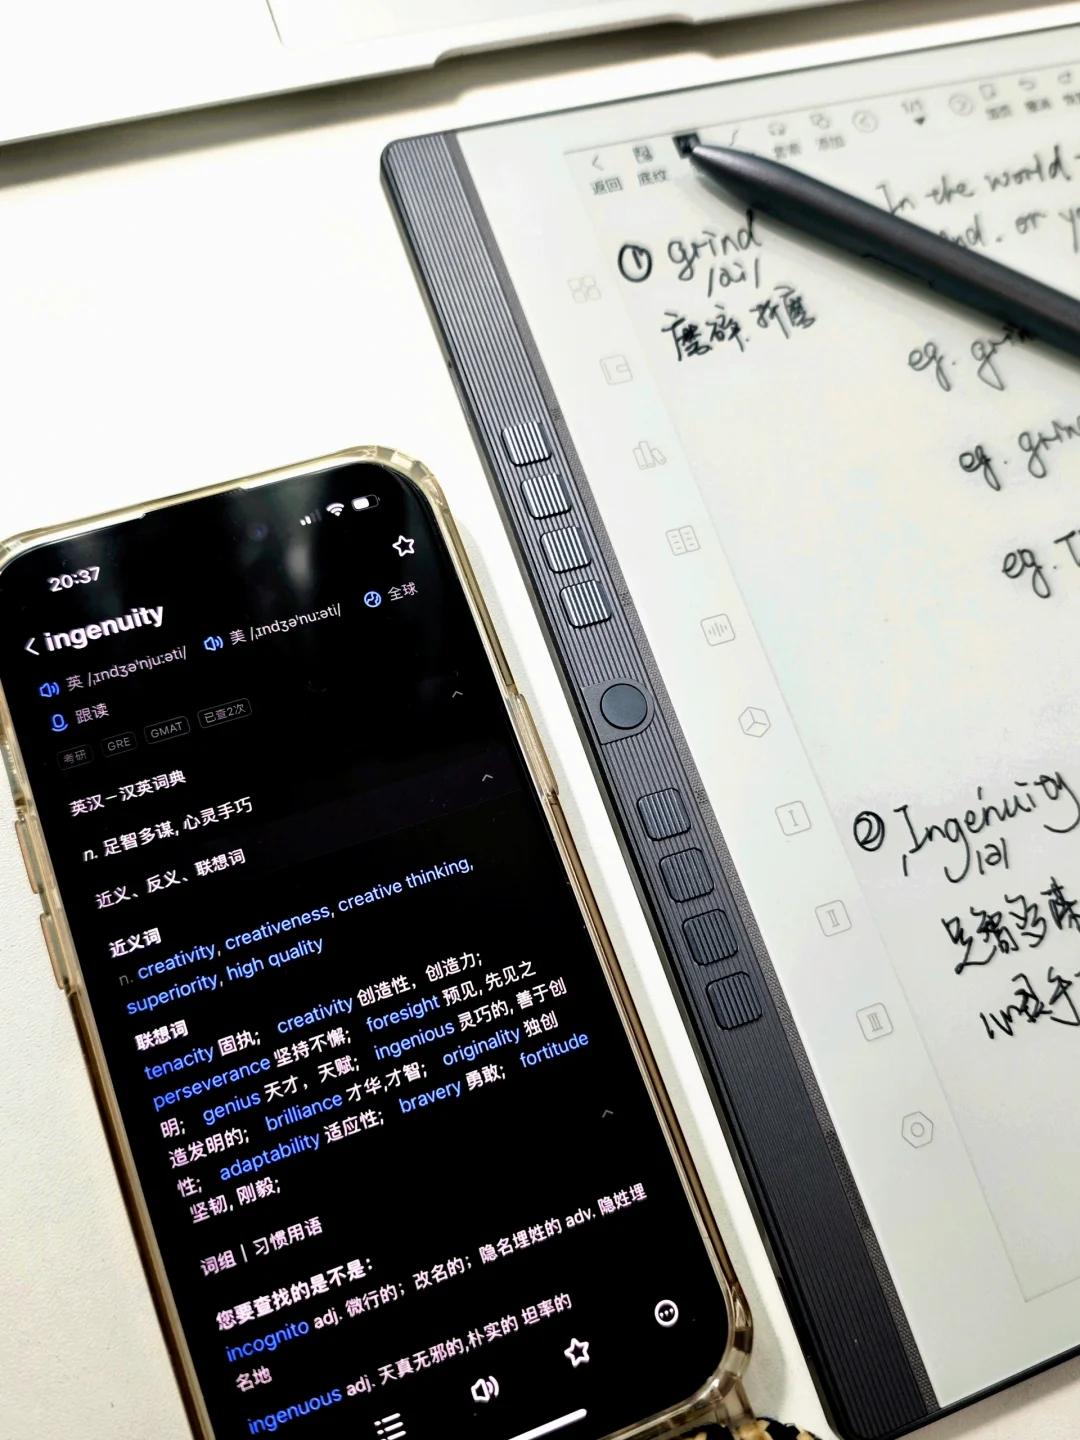 20:37
ingenuity
英 /ˌɪndʒəˈnjuːəti/ 美 /ˌɪndʒəˈnuːəti/ 全球
跟读
考研 GRE GMAT 已查2次
英汉－汉英词典
n. 足智多谋, 心灵手巧
近义、反义、联想词
近义词
n. creativity, creativeness, creative thinking,
superiority, high quality
联想词
tenacity 固执; creativity 创造性, 创造力;
perseverance 坚持不懈; foresight 预见, 先见之
明; genius 天才, 天赋; ingenious 灵巧的, 善于创
造发明的; brilliance 才华,才智; originality 独创
性; adaptability 适应性; bravery 勇敢; fortitude
坚韧, 刚毅;
词组 | 习惯用语
您要查找的是不是:
incognito adj. 微行的; 改名的; 隐名埋姓的 adv. 隐姓埋
名地
ingenuous adj. 天真无邪的,朴实的 坦率的
返回 底纹 套索 添加 1/1
① grind
/ai/
磨碎. 折磨
In the world
and. or
eg.
eg.
eg.
② Ingenuity
/ə/
足智多谋
I
II
III